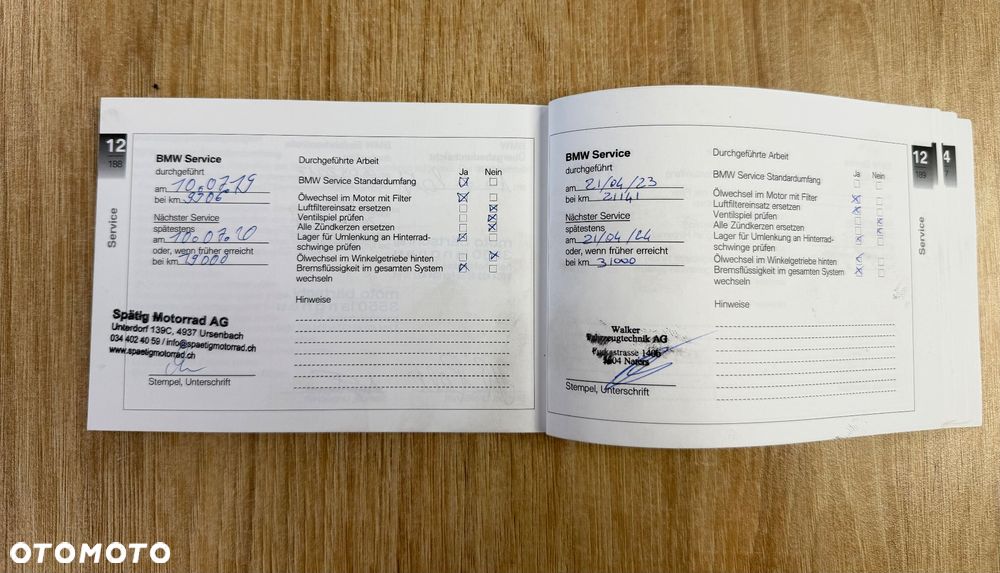 12
188
Service
BMW Service
durchgeführt
am 10.07.19
bei km 9306
Nächster Service
spätestens
am 10.07.20
oder, wenn früher erreicht
bei km 19000
Spätig Motorrad AG
Unterdorf 139C, 4937 Ursenbach
034 402 40 59 / info@spaetigmotorrad.ch
www.spaetigmotorrad.ch
Stempel, Unterschrift
Durchgeführte Arbeit
Ja Nein
BMW Service Standardumfang
Ölwechsel im Motor mit Filter
Luftfiltereinsatz ersetzen
Ventilspiel prüfen
Alle Zündkerzen ersetzen
Lager für Umlenkung an Hinterrad-
schwinge prüfen
Ölwechsel im Winkelgetriebe hinten
Bremsflüssigkeit im gesamten System
wechseln
Hinweise
BMW Service
durchgeführt
am 21/04/23
bei km 21141
Nächster Service
spätestens
am 21/04/24
oder, wenn früher erreicht
bei km 31000
Walker
Fahrzeugtechnik AG
Stempel, Unterschrift
Durchgeführte Arbeit
Ja Nein
BMW Service Standardumfang
Ölwechsel im Motor mit Filter
Luftfiltereinsatz ersetzen
Ventilspiel prüfen
Alle Zündkerzen ersetzen
Lager für Umlenkung an Hinterrad-
schwinge prüfen
Ölwechsel im Winkelgetriebe hinten
Bremsflüssigkeit im gesamten System
wechseln
Hinweise
12
189
Service
4
OTOMOTO